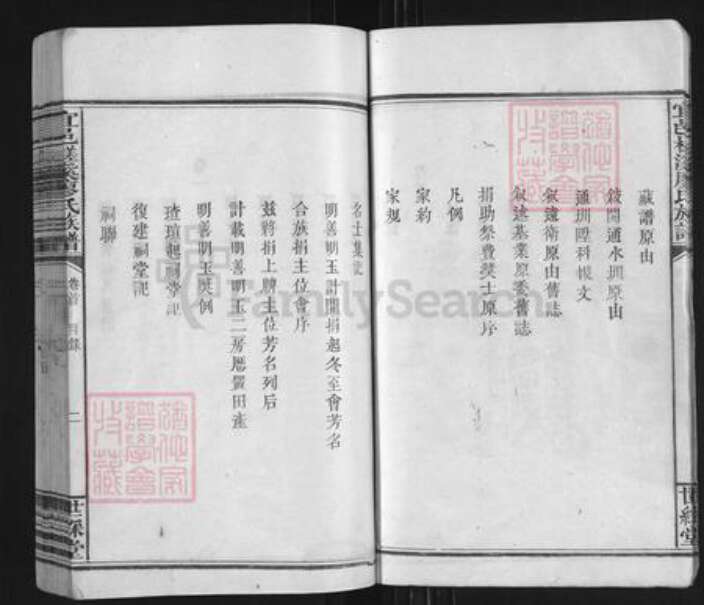 藏譜原由
敘開通水圳原由
通圳陞科根文
叙遠衛原由舊誌
叙述基業原委舊誌
捐助祭費奬士原序
凡例
家約
家規
名士集記
明善明玉計開捐起冬至會芳名
合族捐主位會序
兹將捐上牌主位芳名列后
計載明善明玉二房曆置田產
明善明玉奬例
琦瓊起祠堂記
復建祠堂記
祠聯
卷首 目錄
二
世綵堂
世綵堂
FamilySearch